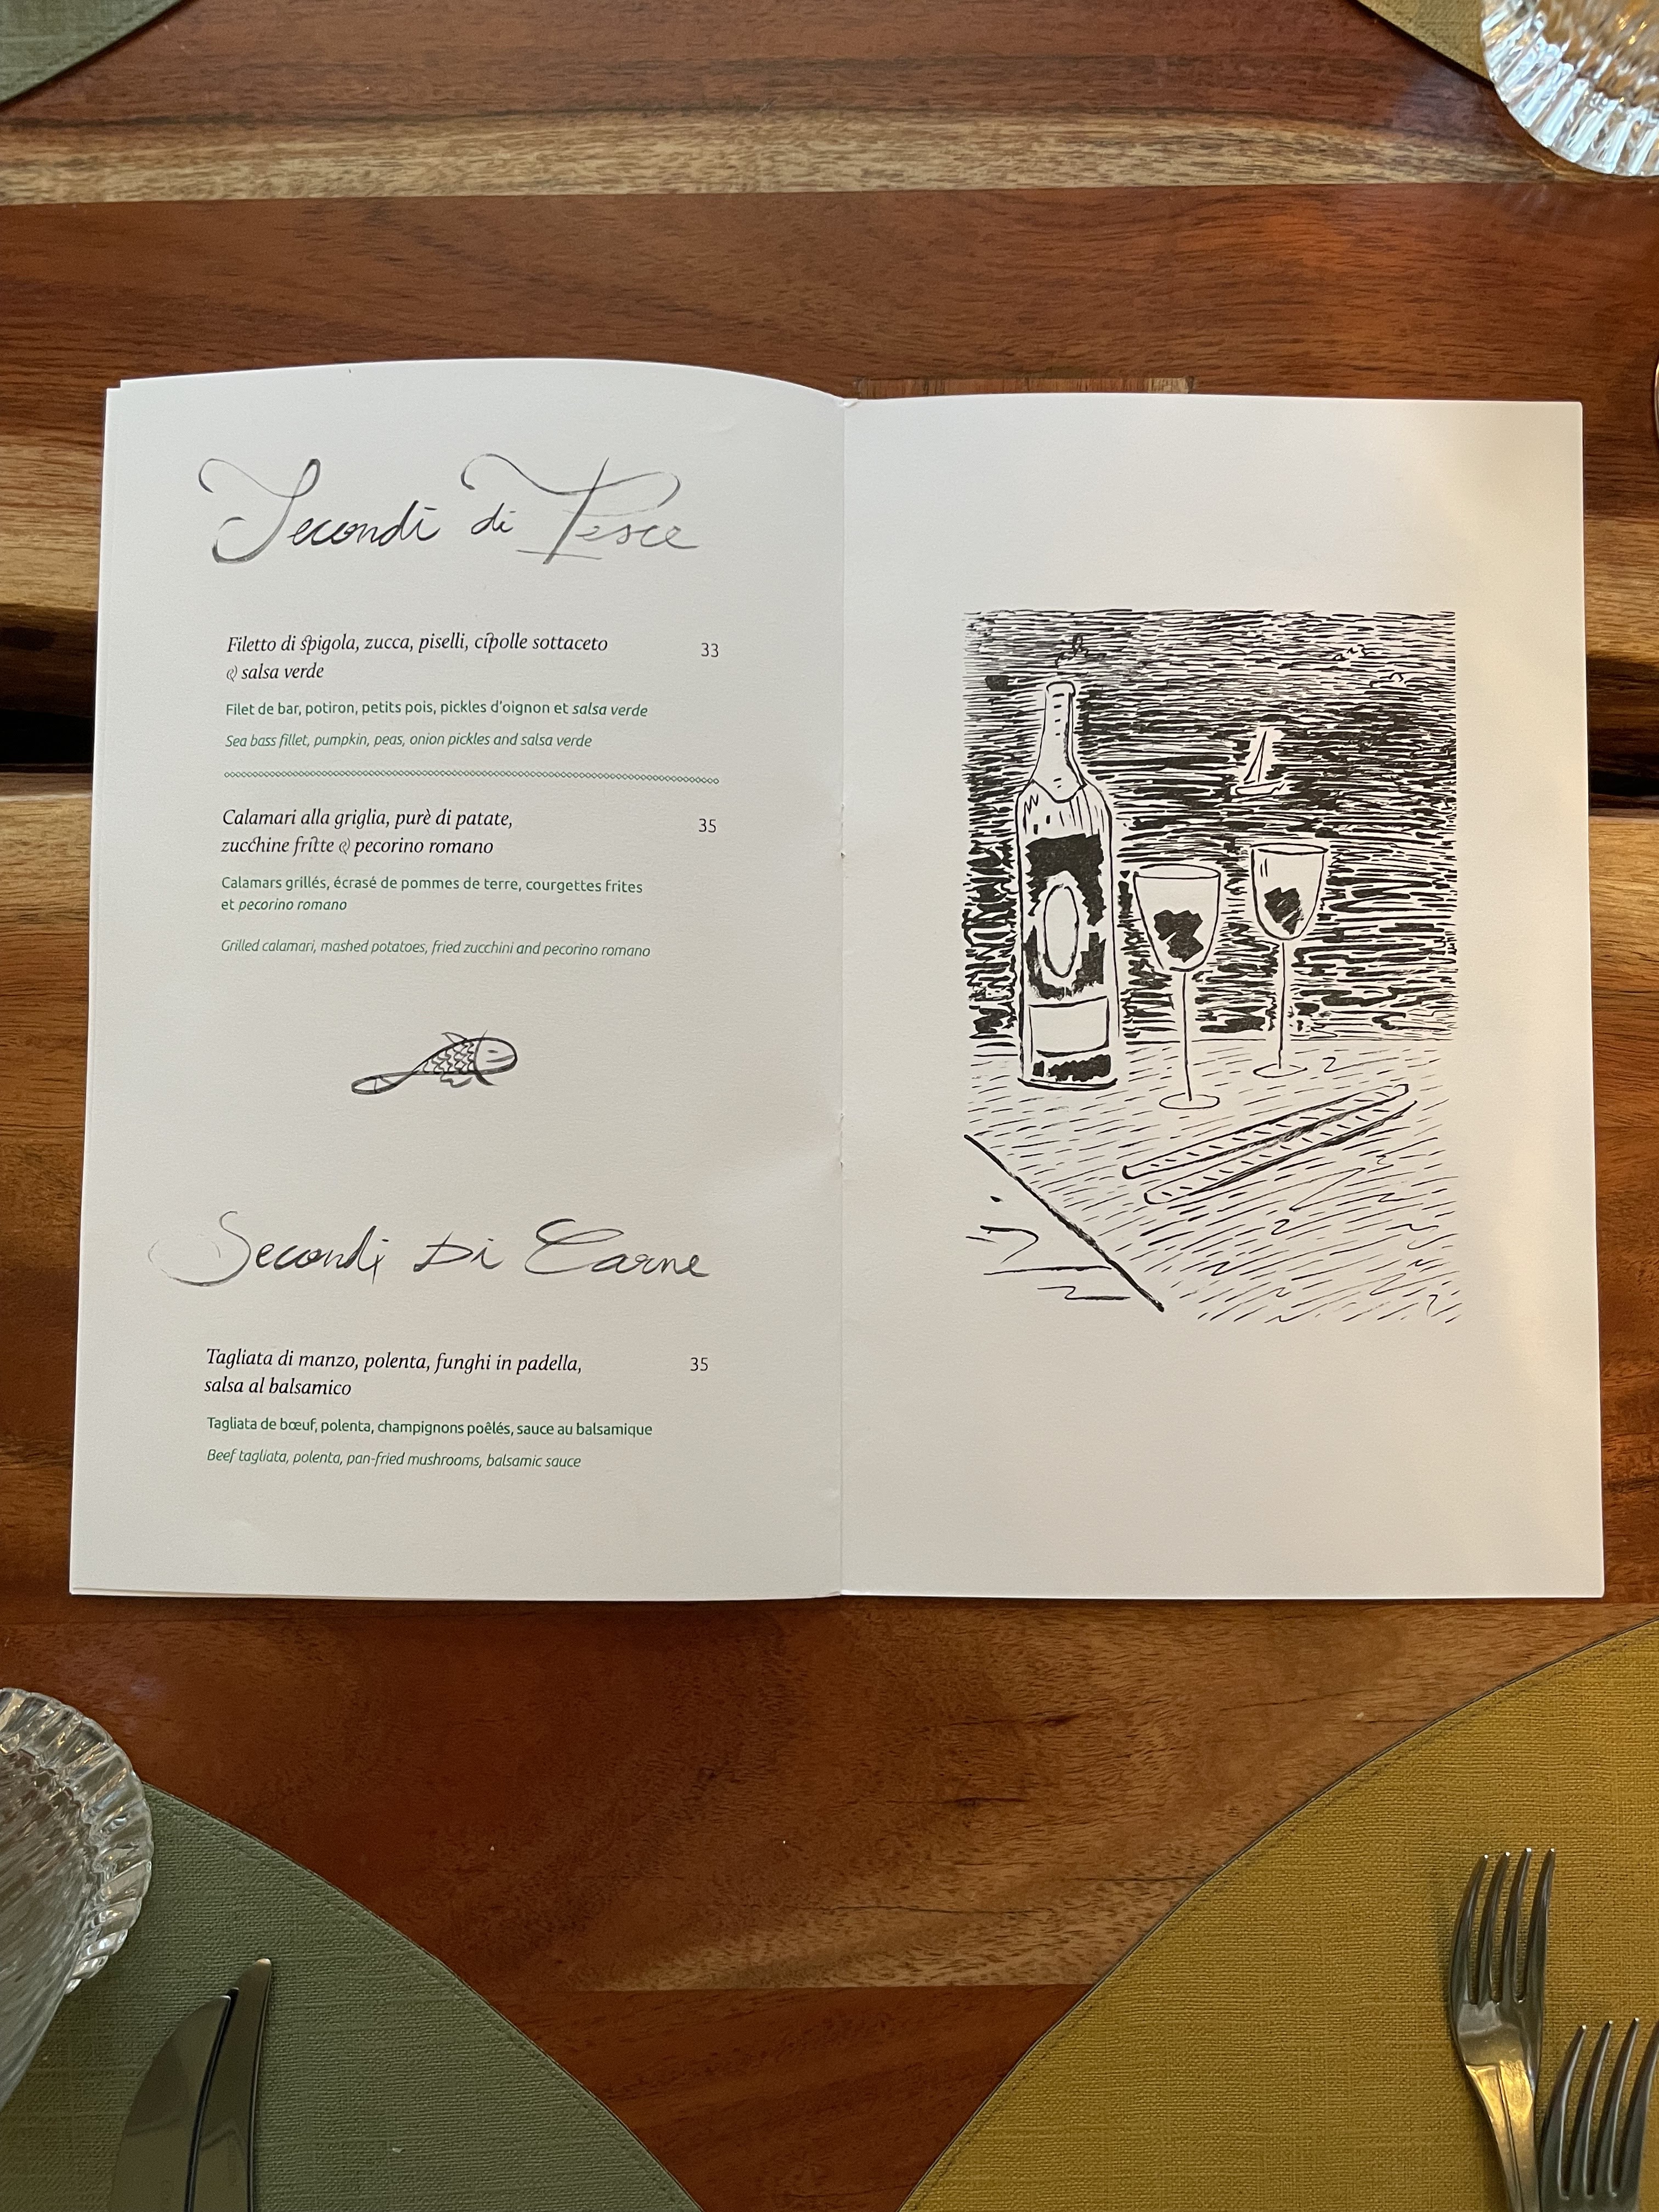 Secondi di Pesce
Filetto di spigola, zucca, piselli, cipolle sottaceto
& salsa verde
33
Filet de bar, potiron, petits pois, pickles d'oignon et salsa verde
Sea bass fillet, pumpkin, peas, onion pickles and salsa verde
Calamari alla griglia, purè di patate,
zucchine fritte & pecorino romano
35
Calamars grillés, écrasé de pommes de terre, courgettes frites
et pecorino romano
Grilled calamari, mashed potatoes, fried zucchini and pecorino romano
Secondi Di Carne
Tagliata di manzo, polenta, funghi in padella,
salsa al balsamico
35
Tagliata de bœuf, polenta, champignons poêlés, sauce au balsamique
Beef tagliata, polenta, pan-fried mushrooms, balsamic sauce